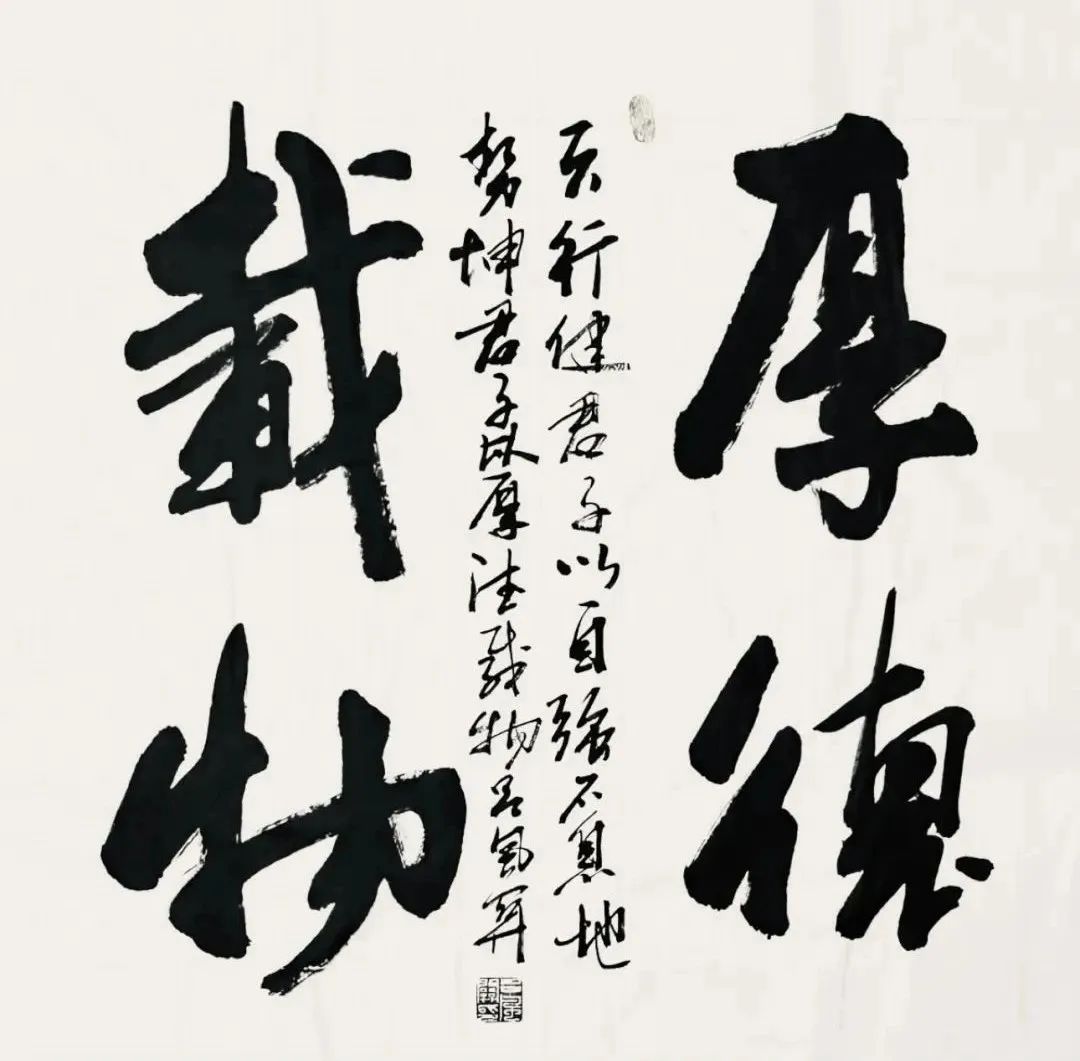 厚德
天行健君子以自强不息地
势坤君子以厚德载物吕风弄
載物